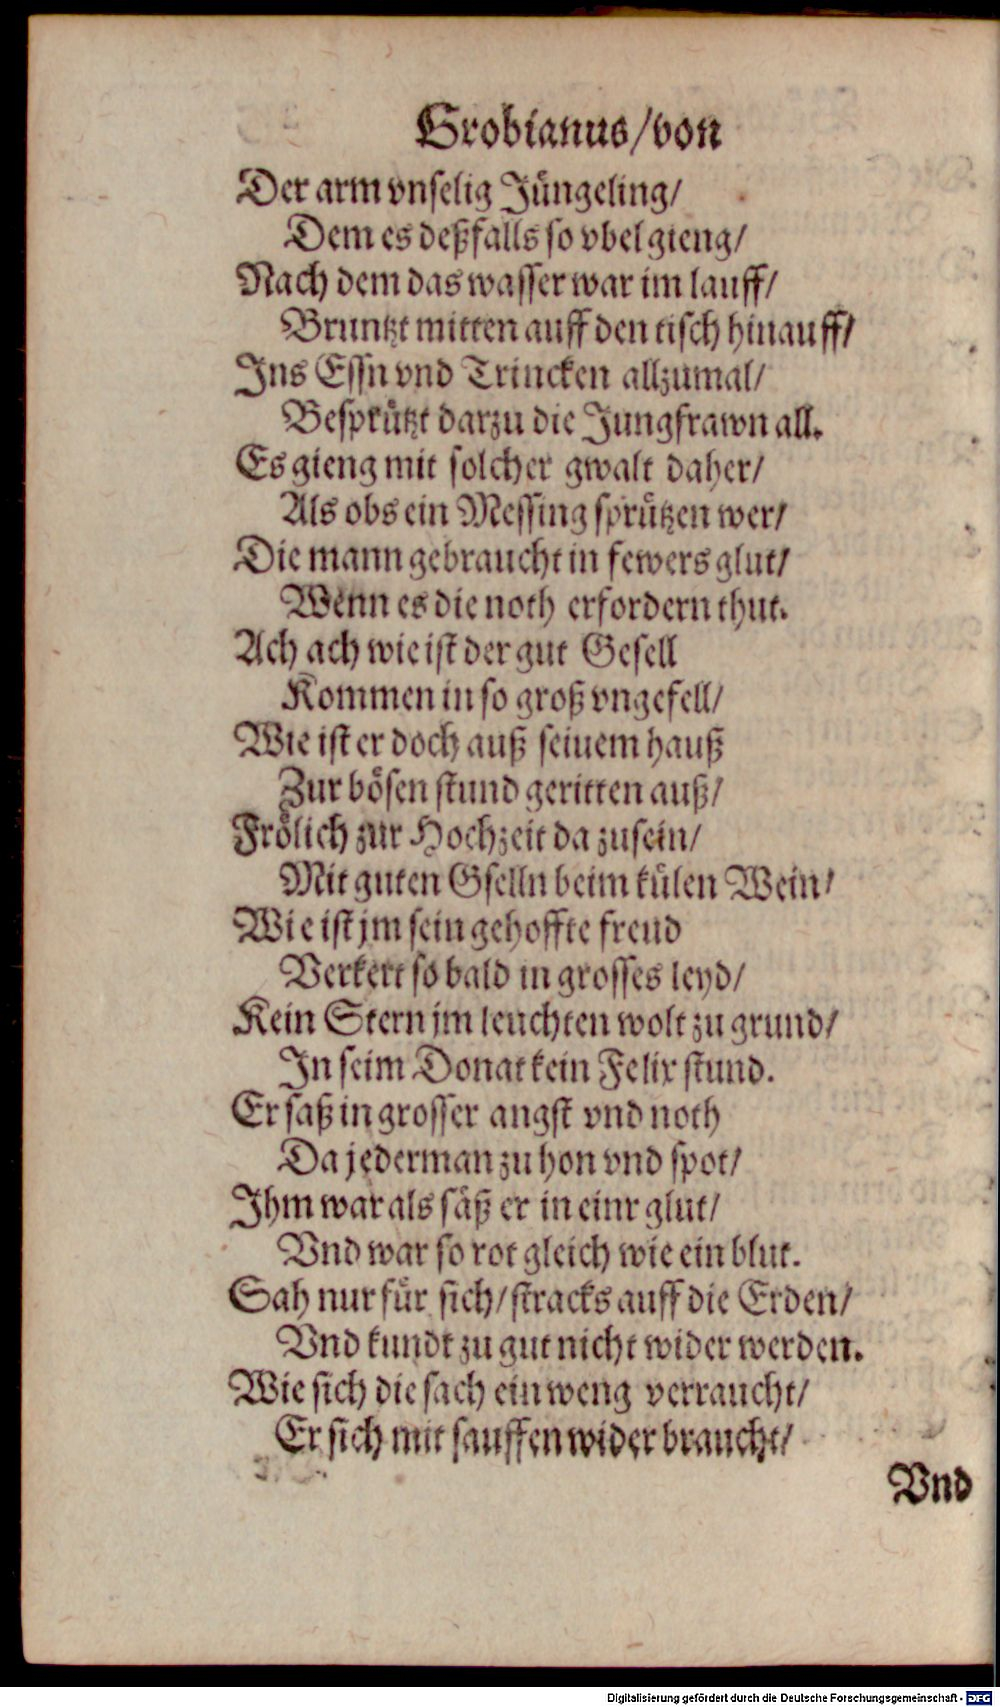 Grobianus/von
Der arm vnselig Jüngeling/
Dem es deßfalls so vbel gieng/
Nach dem das wasser war im lauff/
Bruntzt mitten auff den tisch hinauff/
Ins Essn vnd Trincken allzumal/
Besprützt darzu die Jungfrawn all.
Es gieng mit solcher gwalt daher/
Als obs ein Messing sprützen wer/
Die mann gebraucht in fewers glut/
Wenn es die noth erfordern thut.
Ach ach wie ist der gut Gesell
Kommen in so groß vngefell/
Wie ist er doch auß seinem hauß
Zur bösen stund geritten auß/
Frölich zur Hochzeit da zusein/
Mit guten Gselln beim külen Wein/
Wie ist jm sein gehoffte freud
Verkert so bald in grosses leyd/
Kein Stern jm leuchten wolt zu grund/
In seim Donat kein Felix stund.
Er saß in grosser angst vnd noth
Da jederman zu hon vnd spot/
Ihm war als säß er in einr glut/
Vnd war so rot gleich wie ein blut.
Sah nur für sich/stracks auff die Erden/
Vnd kundt zu gut nicht wider werden.
Wie sich die sach ein weng verraucht/
Er sich mit sauffen wider braucht/
Vnd
Digitalisierung gefördert durch die Deutsche Forschungsgemeinschaft - DFG